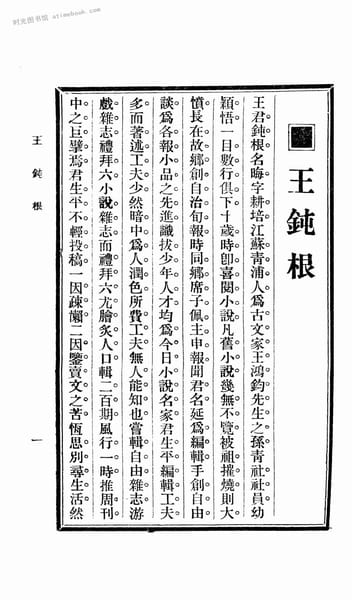 时光图书馆 atimebook.com
■王鈍根
王君鈍根名晦字耕培江蘇青浦人爲古文家王鴻鈞先生之孫靑社社員幼
穎悟一目數行俱下十歲時卽喜閱小說凡舊小說幾無不覽被祖摧燒則大
憤長在故鄉創自治旬報時同鄉席子佩主申報聞君名延爲編輯手創自由
談爲各報小品之先進識拔少年人才均爲今日小說名家君生平編輯工夫
多而著述工夫少然暗中爲人潤色所費工夫無人能知也嘗輯自由雜志游
戲雜志禮拜六小說雜志而禮拜六尤膾炙人口輯二百期風行一時推周刊
中之巨擘焉君生平不輕投稿一因疎懶二因鑒賣文之苦恆思別尋生活然
王鈍根
一